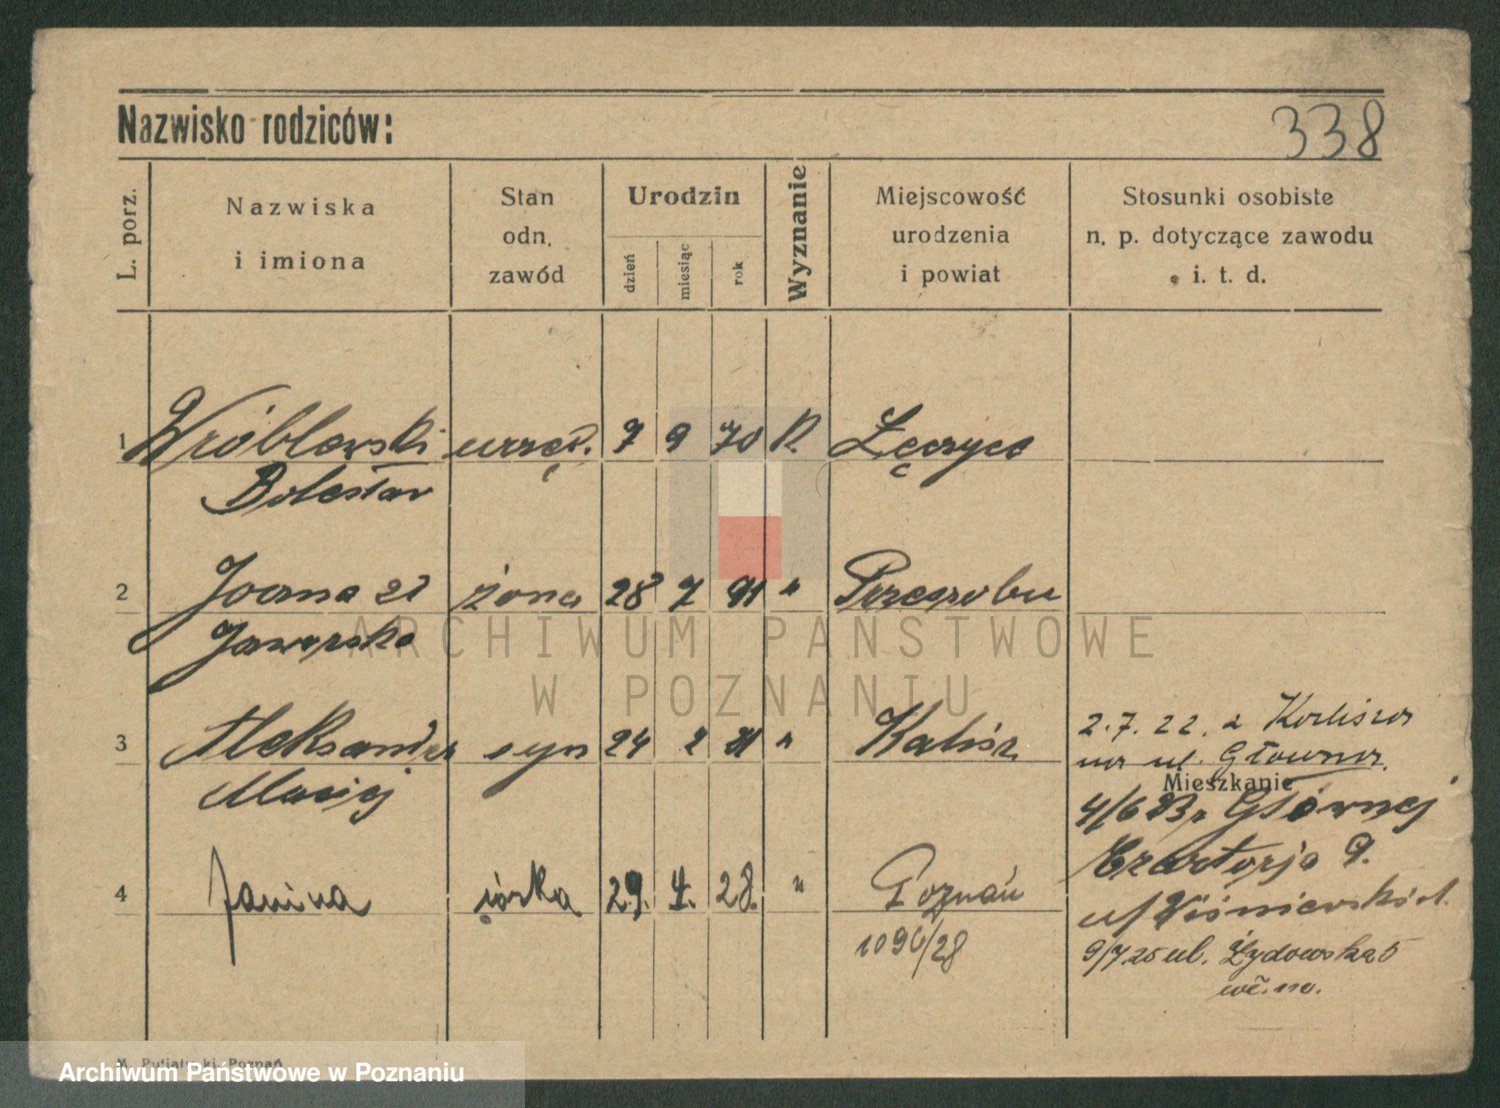 Nazwisko rodziców:
338
L. porz.
Nazwiska
i imiona
Stan
odn.
zawód
Urodzin
dzień
miesiąc
rok
Wyznanie
Miejscowość
urodzenia
i powiat
Stosunki osobiste
n. p. dotyczące zawodu
i. t. d.
1 Wróblewski urzęd. 7 9 70 R. Łęczyca
Bolesław
2 Joanna zd żona 28 7 91 "
Jaworska
ARCHIWUM PAŃSTWOWE
W POZNANIU
3 Aleksander syn 24 2 21 " Kalisz
Maciej
2.7.22. z Kalisza
na ul. Główna.
Mieszkanie
4/6 23 z Głównej
4 Janina córka 29. 4. 28. " Poznań
1090/28
9/7 25 ul. Żydowska 5
M. Putiatycki, Poznań
Archiwum Państwowe w Poznaniu